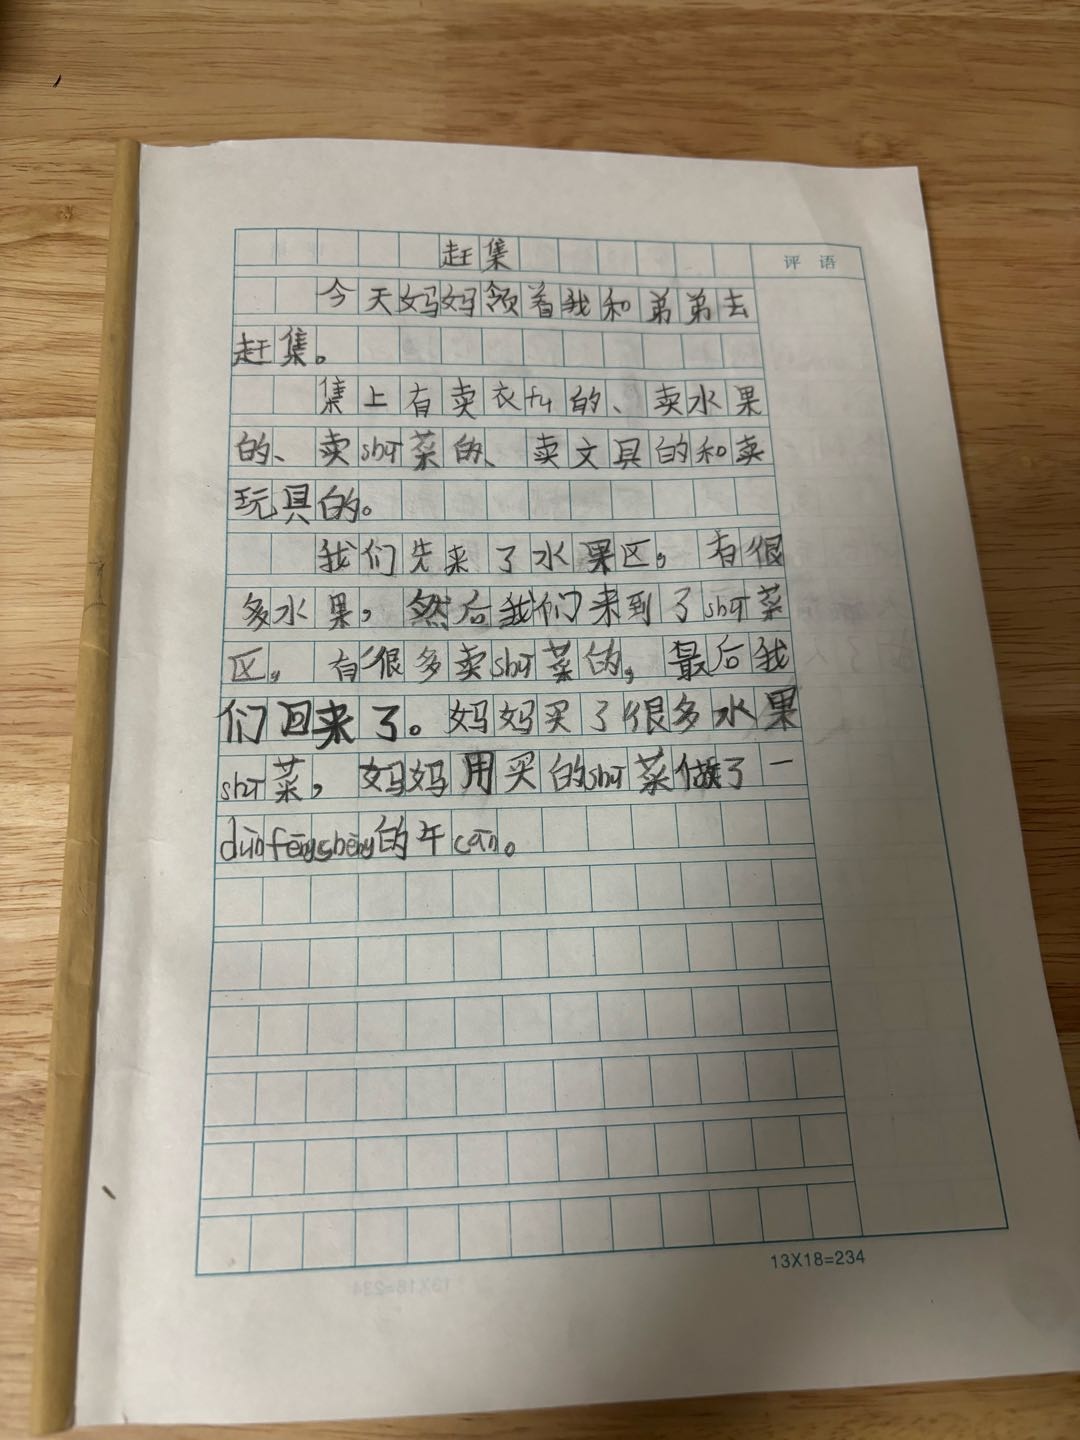 赶集
评 语
今天妈妈领着我和弟弟去
赶集。
集上有卖衣fu的、卖水果
的、卖shu菜的、卖文具的和卖
玩具的。
我们先来了水果区。有很
多水果，然后我们来到了shu菜
区。有很多卖shu菜的，最后我
们回来了。妈妈买了很多水果
shu菜，妈妈用买的shu菜做了一
dùnfēngshèng的午cān。
13X18=234